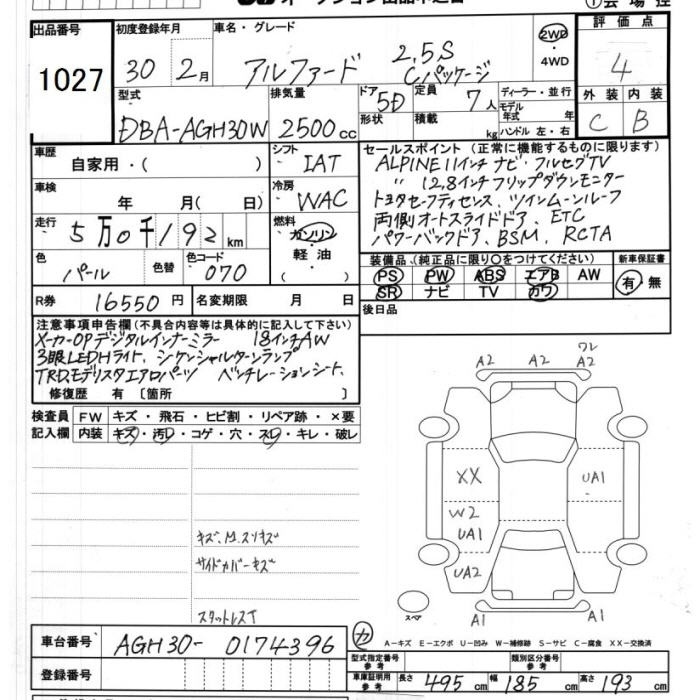 出品番号 初度登録年月 車名・グレード 評価点
1027 30 2月 アルファード 2.5S Cパッケージ 2WD・4WD 4
外装 内装
C B
型式 排気量 ドア 形状 定員 積載 ディーラー・並行
DBA-AGH30W 2500cc 5D 7人 kg モデル年式 年式 ハンドル 左・右
車歴 自家用・( ) シフト IAT
セールスポイント (正常に機能するものに限ります)
ALPINE11インチナビ・フルセグTV
〃 12.8インチフリップダウンモニター
トヨタセーフティセンス、ツインムーンルーフ
両側オートスライドドア、ETC
パワーバックドア、BSM、RCTA
車検 年 月(日) 冷房 WAC
走行 5万0千192km 燃料 ガソリン・軽油・( )
色 パール 色替 色コード 070
装備品(純正品に限り○をつけてください) 新車保証書
PS PW ABS エアB AW 有・無
SR ナビ TV カワ
R券 16550円 名変期限 月 日 後日品
注意事項申告欄(不具合内容等は具体的に記入して下さい)
メーカーOPデジタルインナーミラー 18インチAW
3眼LEDHライト、シケンシャルターンランプ
TRD、モデリスタエアロパーツ ベンチレーションシート、
修復歴 有〔箇所 〕
検査員記入欄 FW キズ・飛石・ヒビ割・リペア跡・×要
内装 キズ・汚レ・コゲ・穴・スレ・キレ・破レ
ワレ
A2 A2 A2
XX UA1
W2
UA1
UA2
キズ、M、スリキズ
サイドカバーキズ
スタットレスT
スペア
A1 A1
車台番号 AGH30-0174396
カ
A-キズ E-エクボ U-凹み W-補修跡 S-サビ C-腐食 XX-交換済
登録番号
型式指定番号参考 類別区分番号参考
車庫証明用参考 長さ 495cm 幅 185cm 高さ 193cm